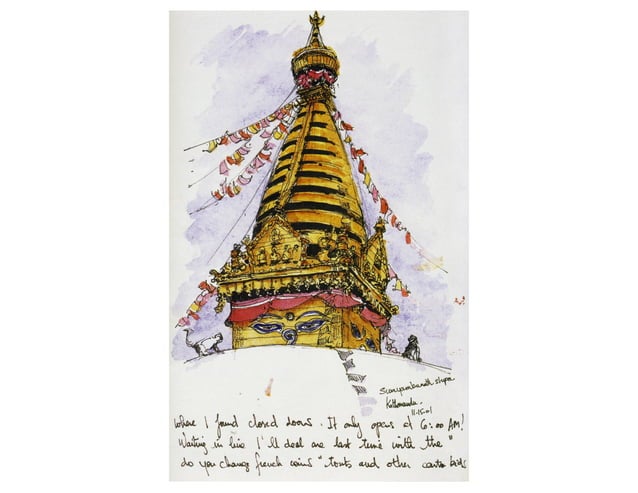 Swayambunath stupa.
Kathmandu.
11-15-01
where I found closed doors. It only opens at 6:00 AM!
Waiting in line I'll deal one last time with the "
do you change french coins" touts and other